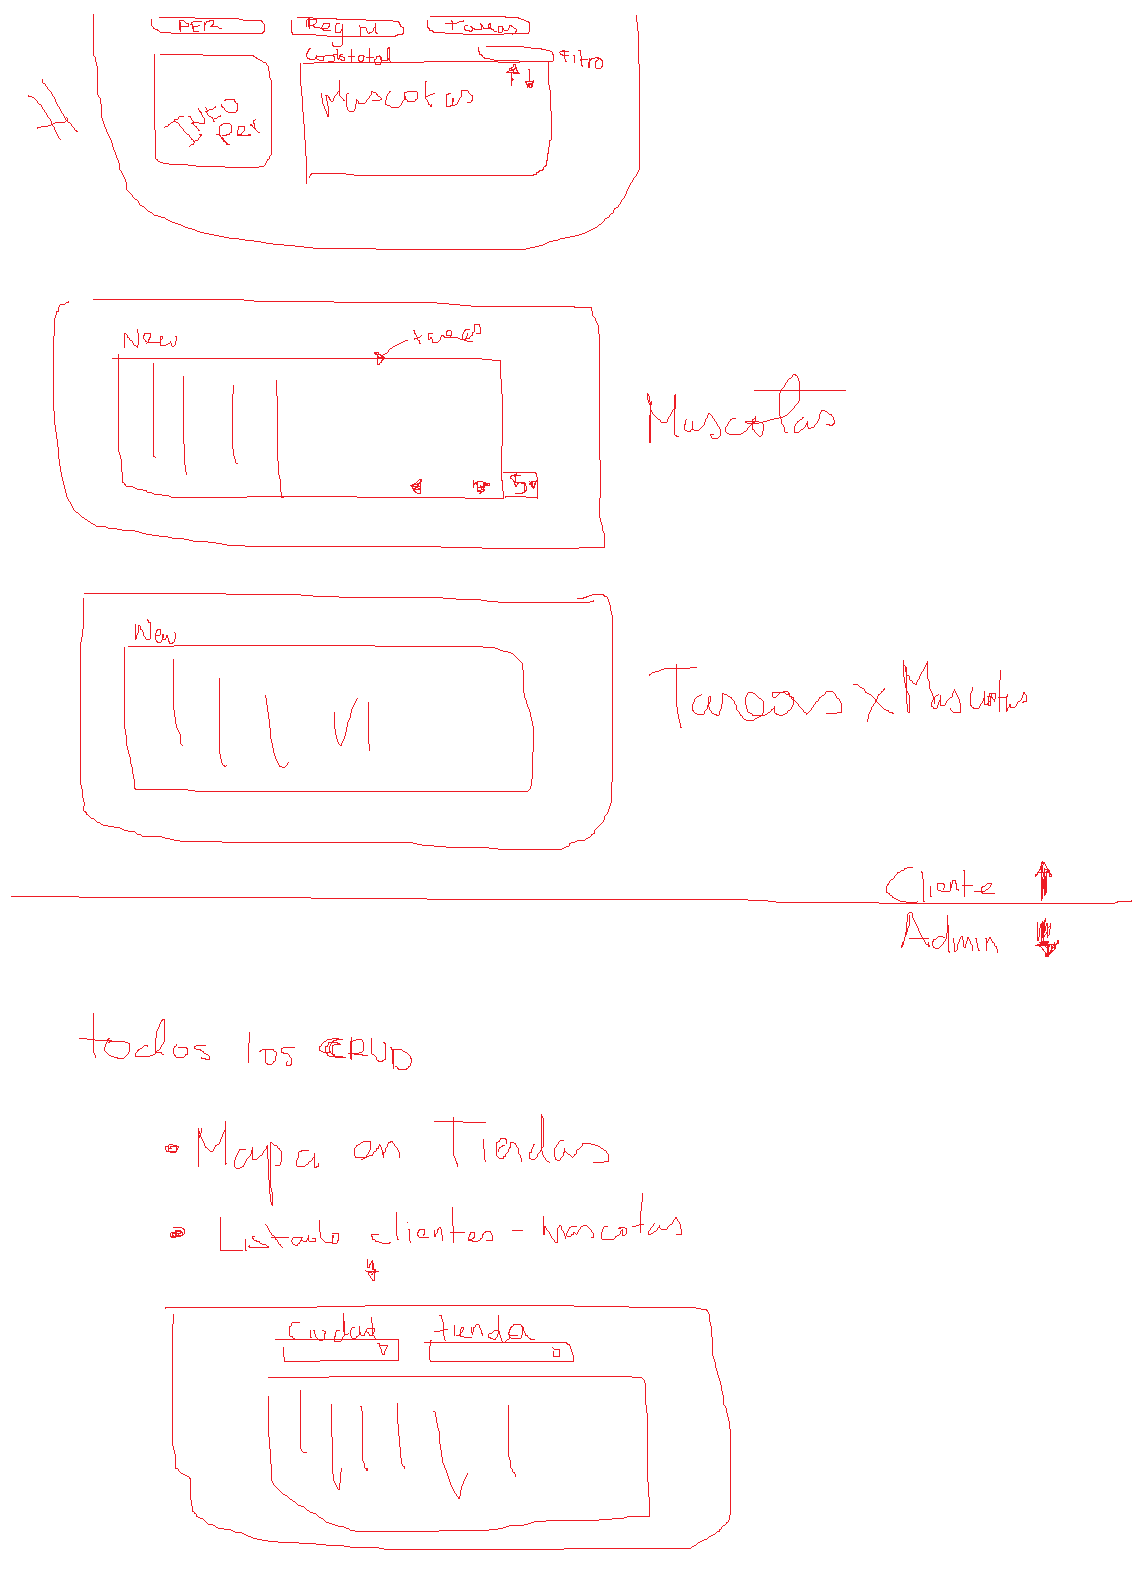 PER Reg M tareas
Costototal Filtro
Mascotas
INFO
Per
H
New tareas
Mascotas
New
Tareas x Mascotas
Cliente
Admin
todos los CRUD
• Mapa en Tiendas
• Listado clientes - Mascotas
Ciudad tienda